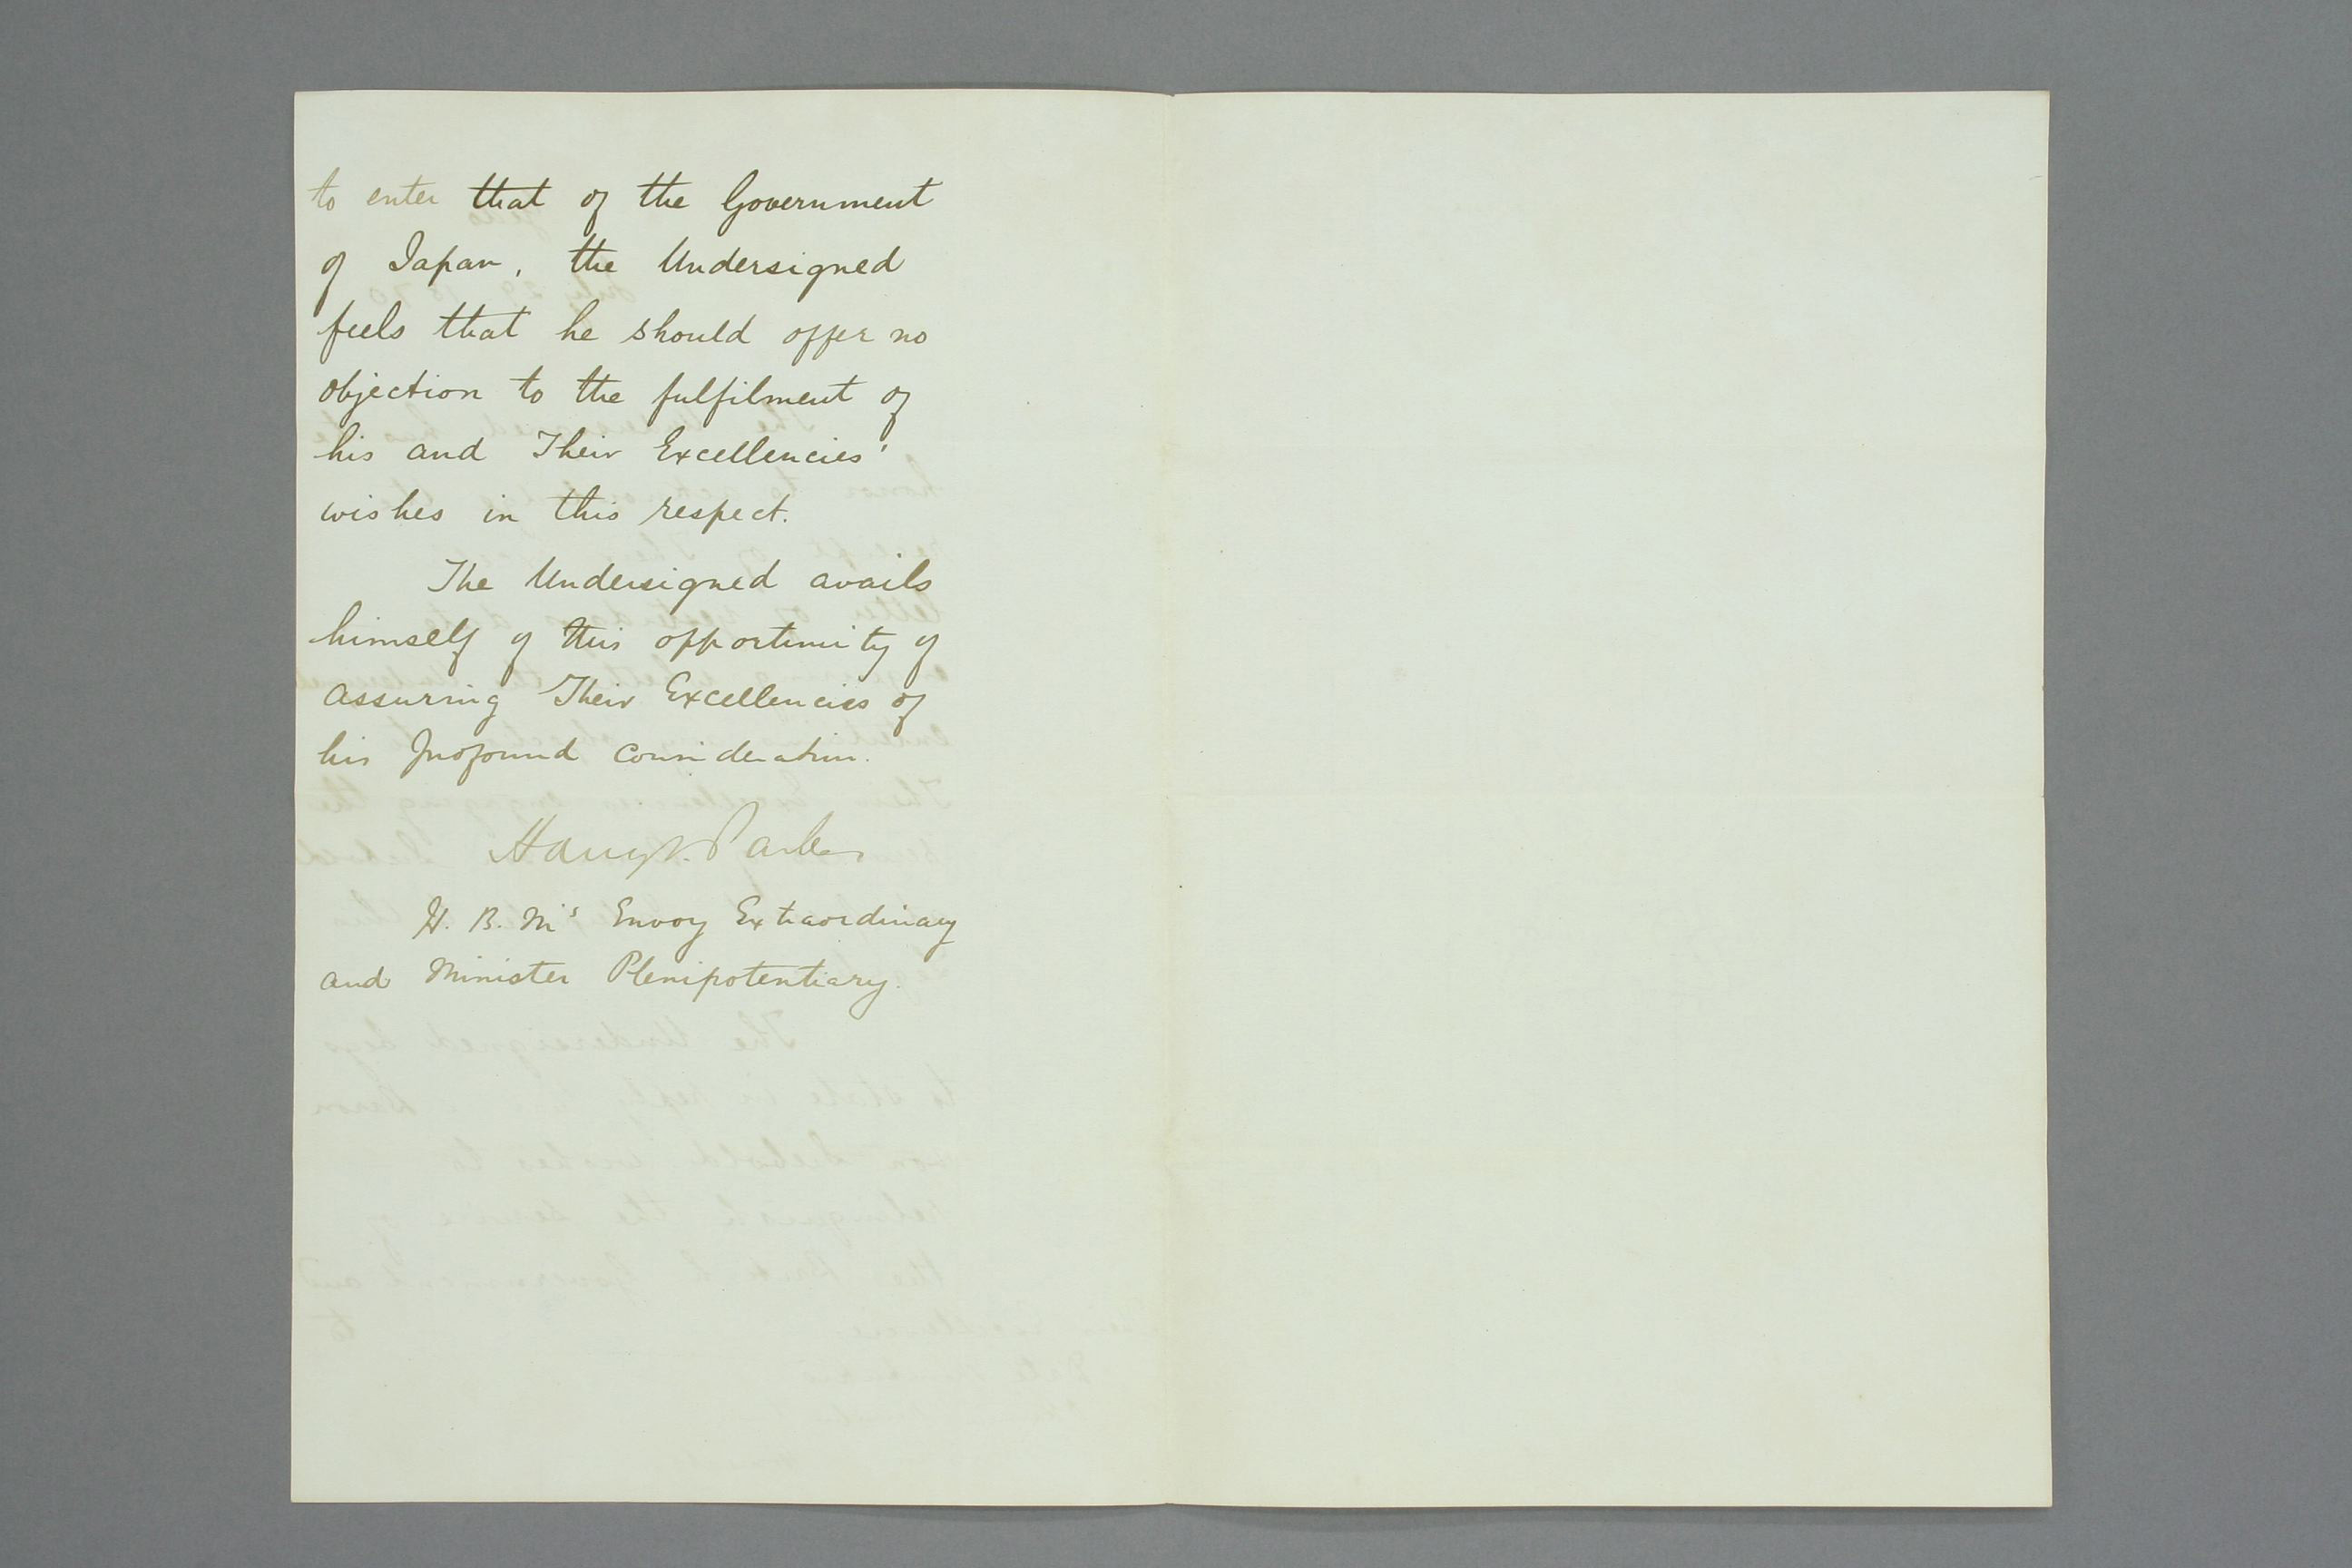 to enter that of the Government
of Japan, the Undersigned
feels that he should offer no
objection to the fulfilment of
his and Their Excellencies'
wishes in this respect.
The Undersigned avails
himself of this opportunity of
assuring Their Excellencies of
his profound consideration.
Harry S. Parkes
H. B. M's Envoy Extraordinary
and Minister Plenipotentiary.